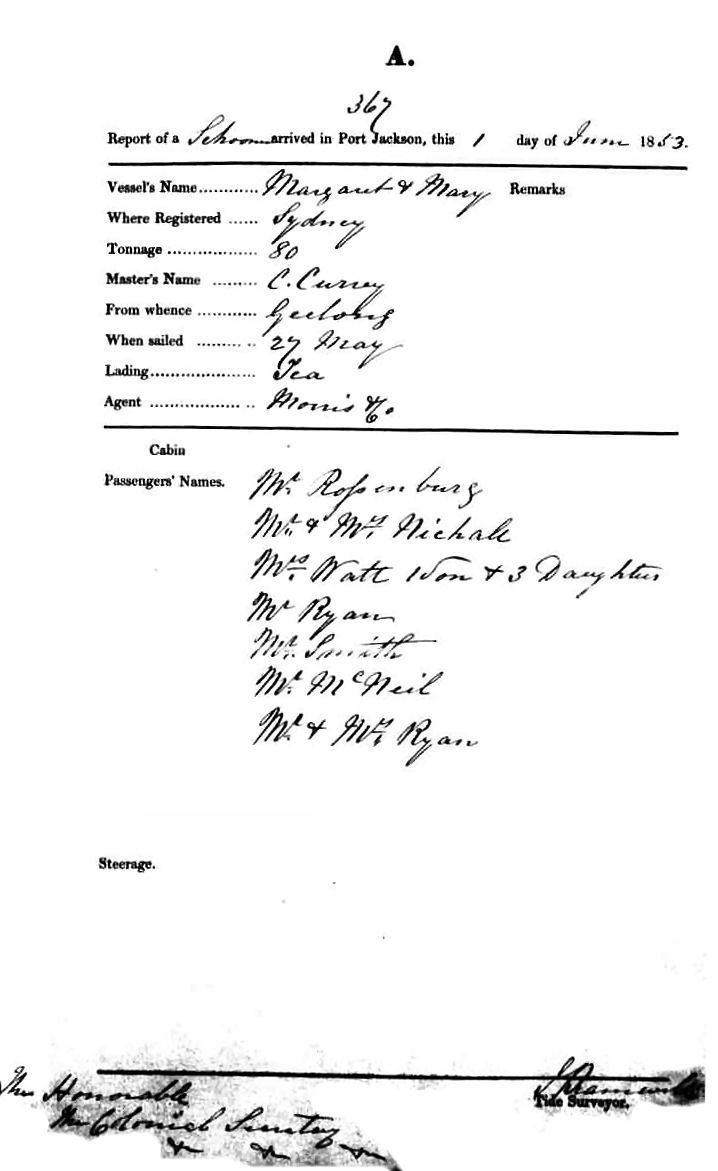 A.
367
Report of a Schooner arrived in Port Jackson, this 1 day of June 1853.
Vessel's Name............ Margaret & Mary Remarks
Where Registered ...... Sydney
Tonnage .................. 80
Master's Name ......... C. Currey
From whence ............ Geelong
When sailed ......... .. 27 May
Lading..................... Tea
Agent .................. .. Morris & Co
Cabin
Passengers' Names. Mr. Rossenburg
Mr. & Mrs. Nichall
Mrs. Watt 1 Son & 3 Daughters
Mr Ryan
Mr. Smith
Mr. McNeil
Mr. & Mrs. Ryan
Steerage.
The Honorable
The Colonial Secretary
Tide Surveyor.